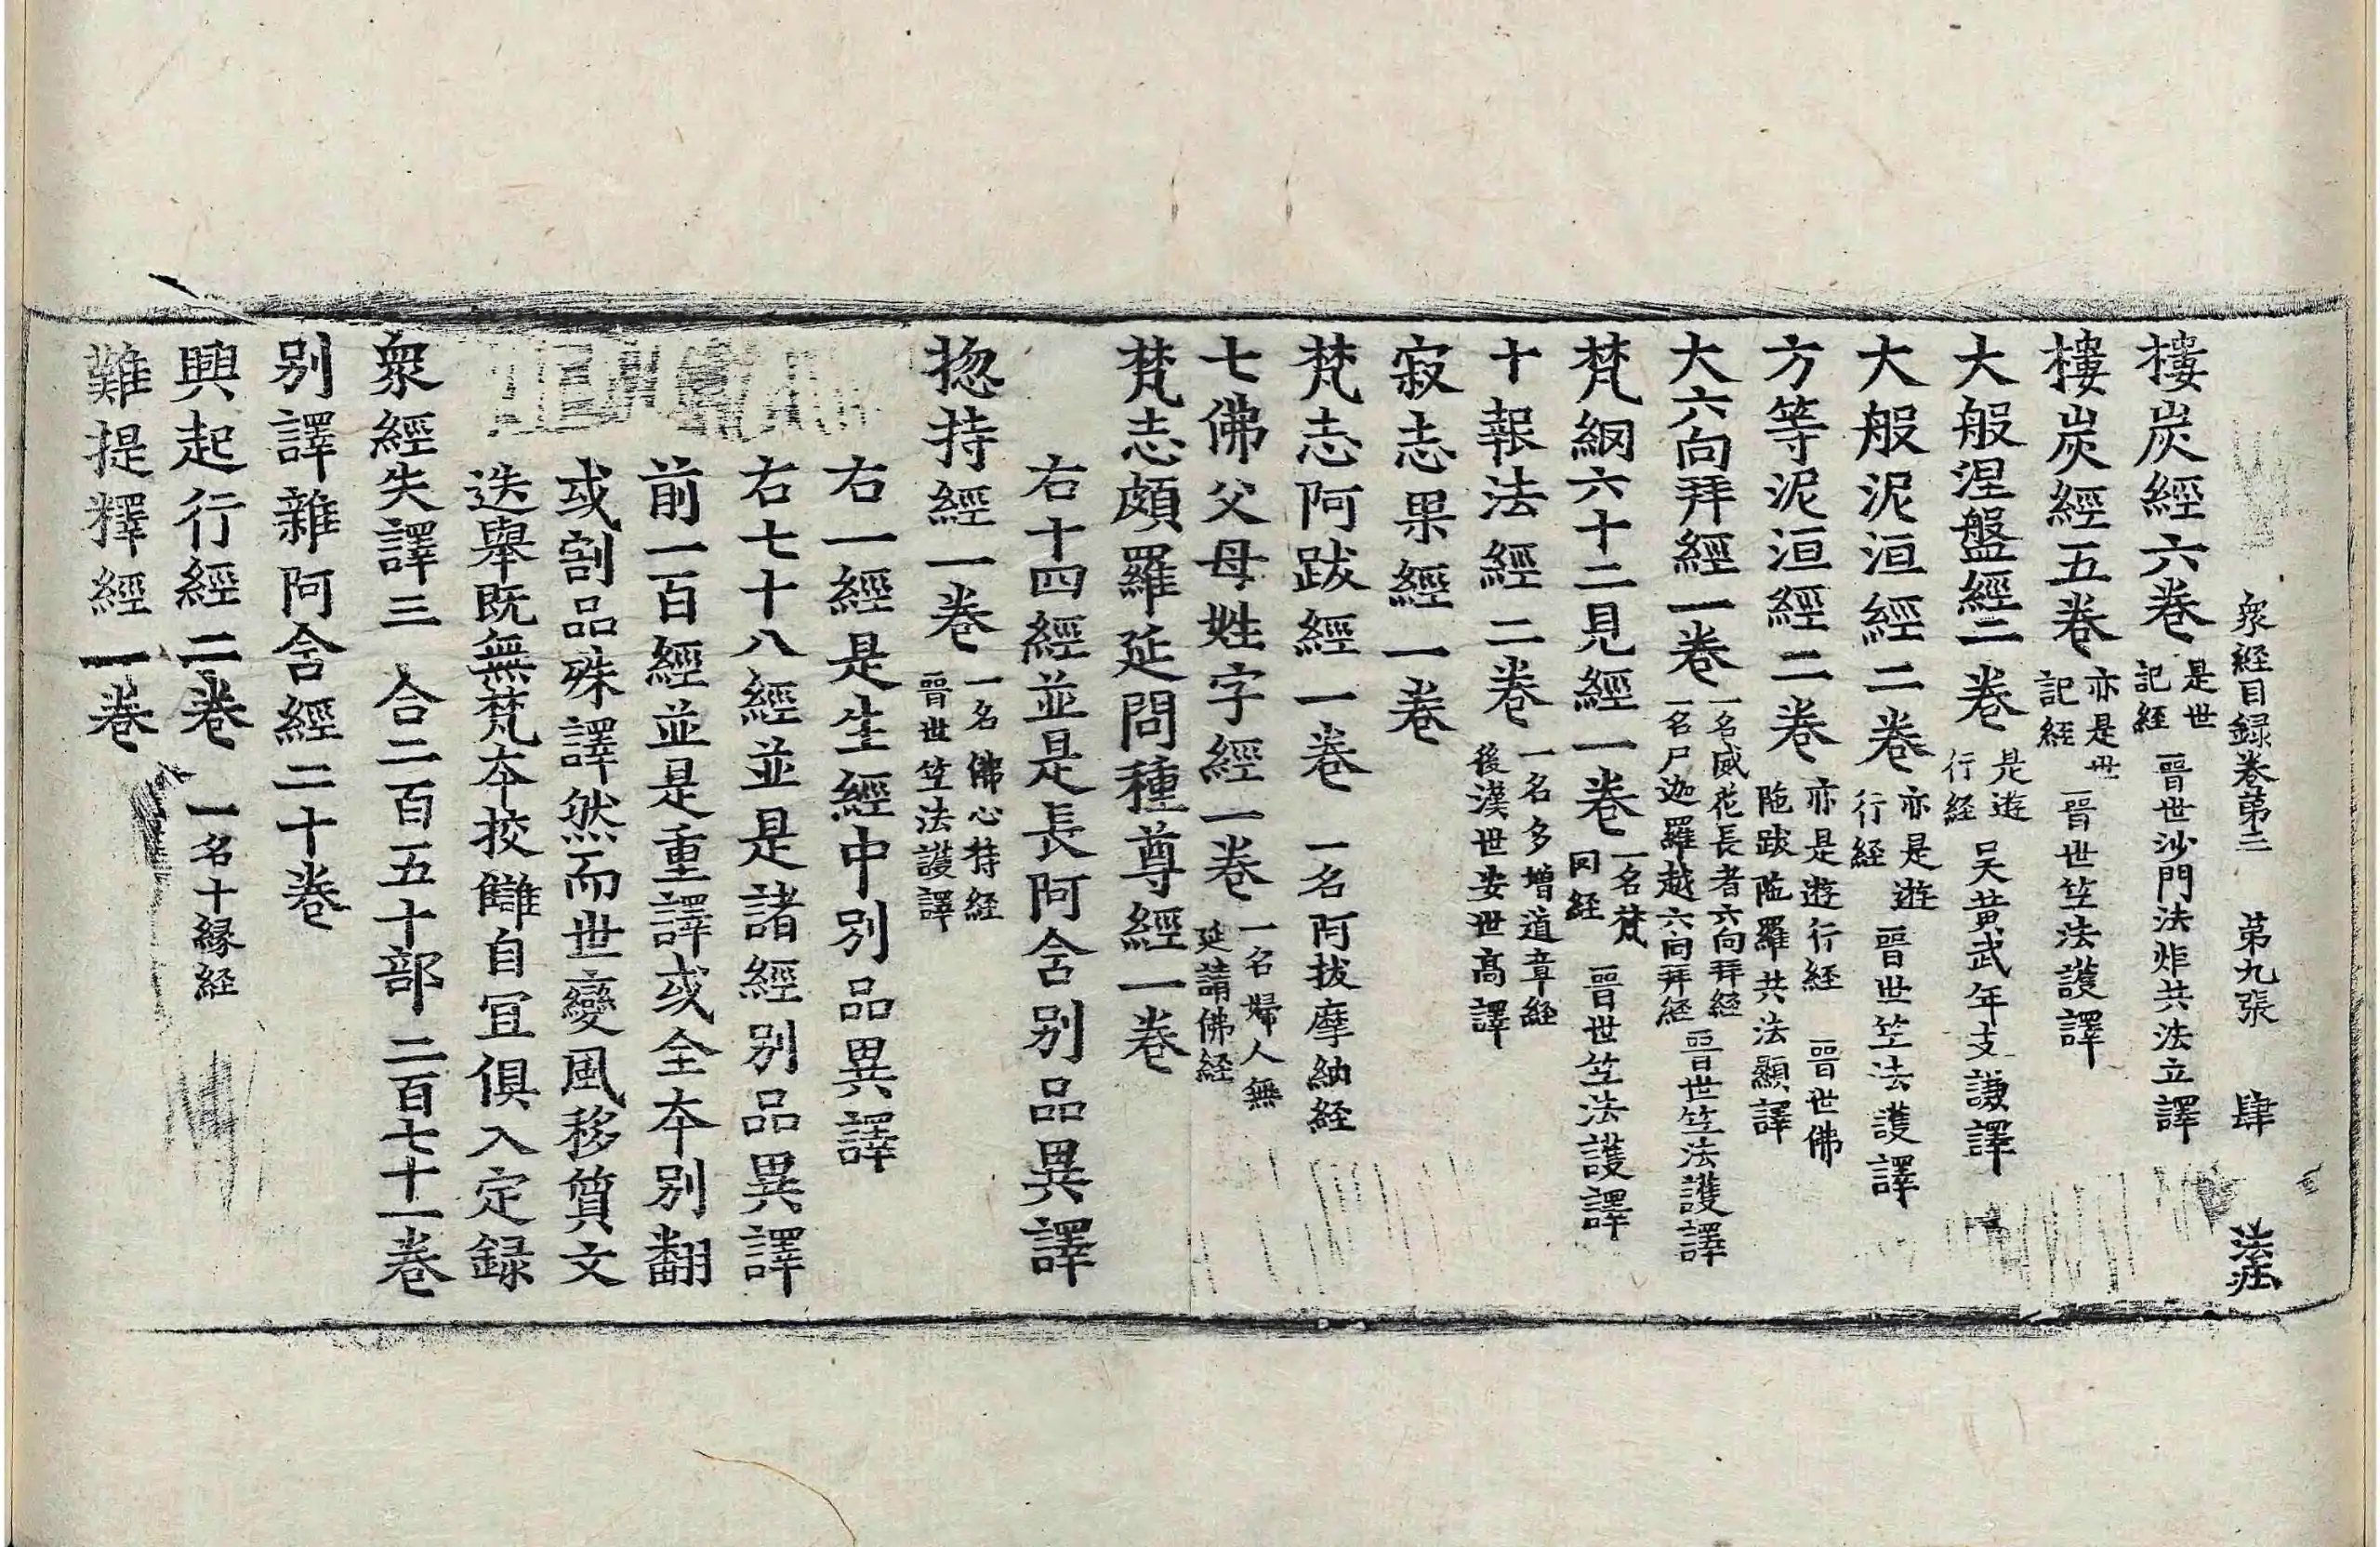 衆経目録卷第三　第九張　肆　法莊
樓炭經六卷 是世記経 晉世沙門法炬共法立譯
樓炭經五卷 亦是世記経 晉世竺法護譯
大般涅盤經二卷 是遊行経 吴黄武年支謙譯
大般泥洹經二卷 亦是遊行経 晉世竺法護譯
方等泥洹經二卷 亦是遊行経 晉世佛陁跋陁羅共法顯譯
大六向拜經一卷 一名威花長者六向拜経 一名尸迦羅越六向拜経 晉世竺法護譯
梵網六十二見經一卷 一名梵网経 晉世竺法護譯
十報法經二卷 一名多增道章経 後漢世安世高譯
寂志果經一卷
梵志阿跋經一卷 一名阿拔摩納経
七佛父母姓字經一卷 一名婦人無延請佛経
梵志頗羅延問種尊經一卷
右十四經並是長阿含别品異譯
揔持經一卷 一名佛心持経 晉世竺法護譯
右一經是生經中别品異譯
右七十八經並是諸經别品異譯
前一百經並是重譯或全夲别翻
或割品殊譯然而世變風移質文
迭舉既無梵夲挍讎自冝俱入定録
衆經失譯三　合二百五十部　二百七十一卷
别譯雜阿含經二十卷
興起行經二卷 一名十緣経
難提釋經一卷